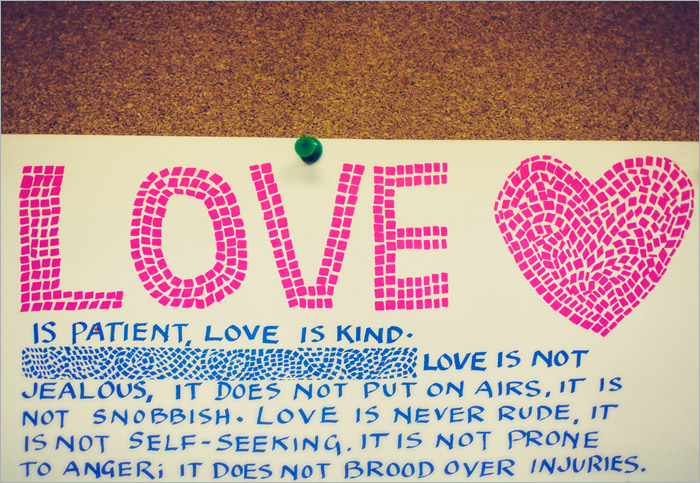 LOVE
IS PATIENT, LOVE IS KIND.
LOVE IS NOT
JEALOUS, IT DOES NOT PUT ON AIRS, IT IS
NOT SNOBBISH. LOVE IS NEVER RUDE, IT
IS NOT SELF-SEEKING, IT IS NOT PRONE
TO ANGER; IT DOES NOT BROOD OVER INJURIES.